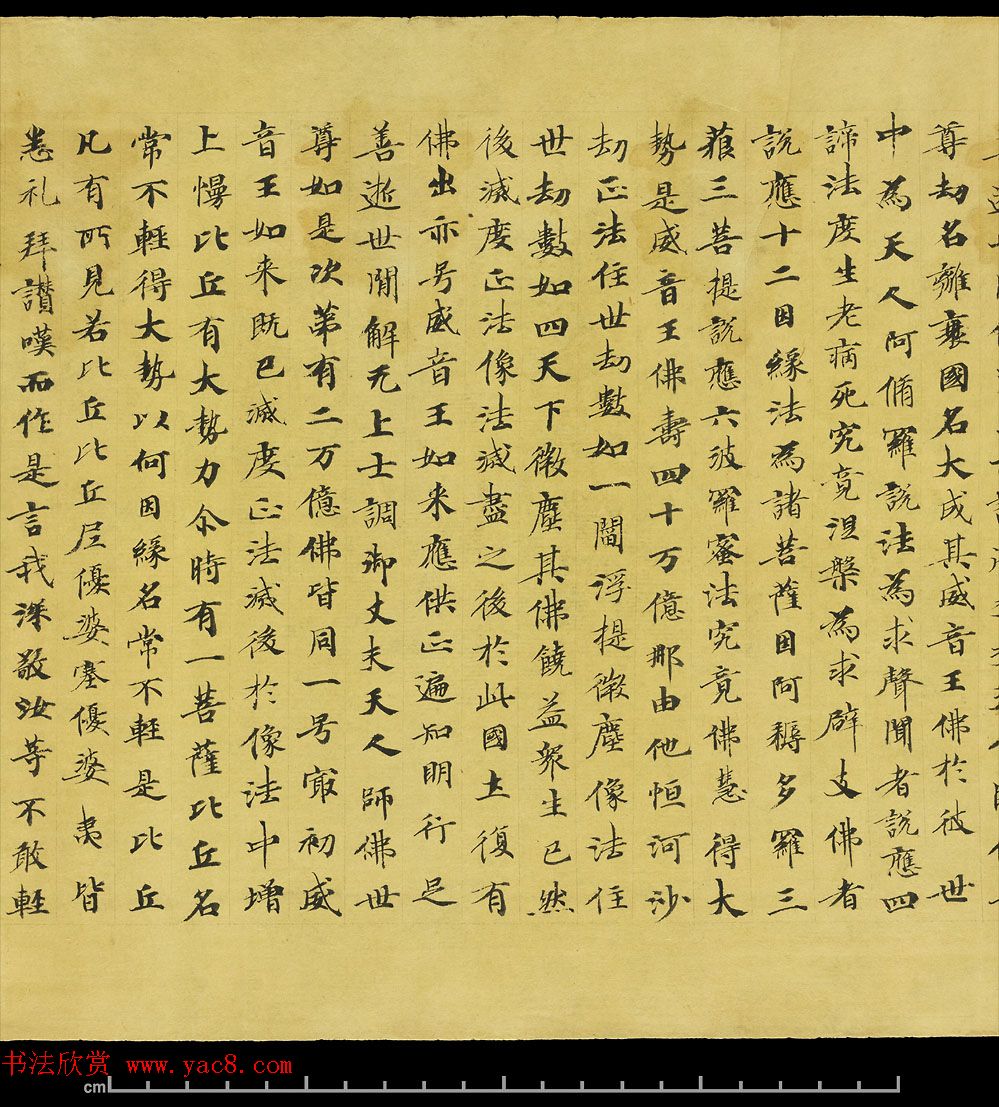 尊劫名離衰國名大成其威音王佛於彼世
中為天人阿脩羅說法為求聲聞者說應四
諦法度生老病死究竟涅槃為求辟支佛者
說應十二因緣法為諸菩薩因阿耨多羅三
藐三菩提說應六波羅蜜法究竟佛慧得大
勢是威音王佛壽四十万億那由他恒河沙
劫正法住世劫數如一閻浮提微塵像法住
世劫數如四天下微塵其佛饒益眾生已然
後滅度正法像法滅盡之後於此國土復有
佛出亦号威音王如来應供正遍知明行足
善逝世間解无上士調御丈夫天人師佛世
尊如是次第有二万億佛皆同一号㝡初威
音王如来既已滅度正法滅後於像法中增
上慢比丘有大勢力尒時有一菩薩比丘名
常不輕得大勢以何因緣名常不輕是比丘
凡有所見若比丘比丘尼優婆塞優婆夷皆
悉礼拜讃嘆而作是言我深敬汝等不敢輕
书法欣赏 www.yac8.com
cm